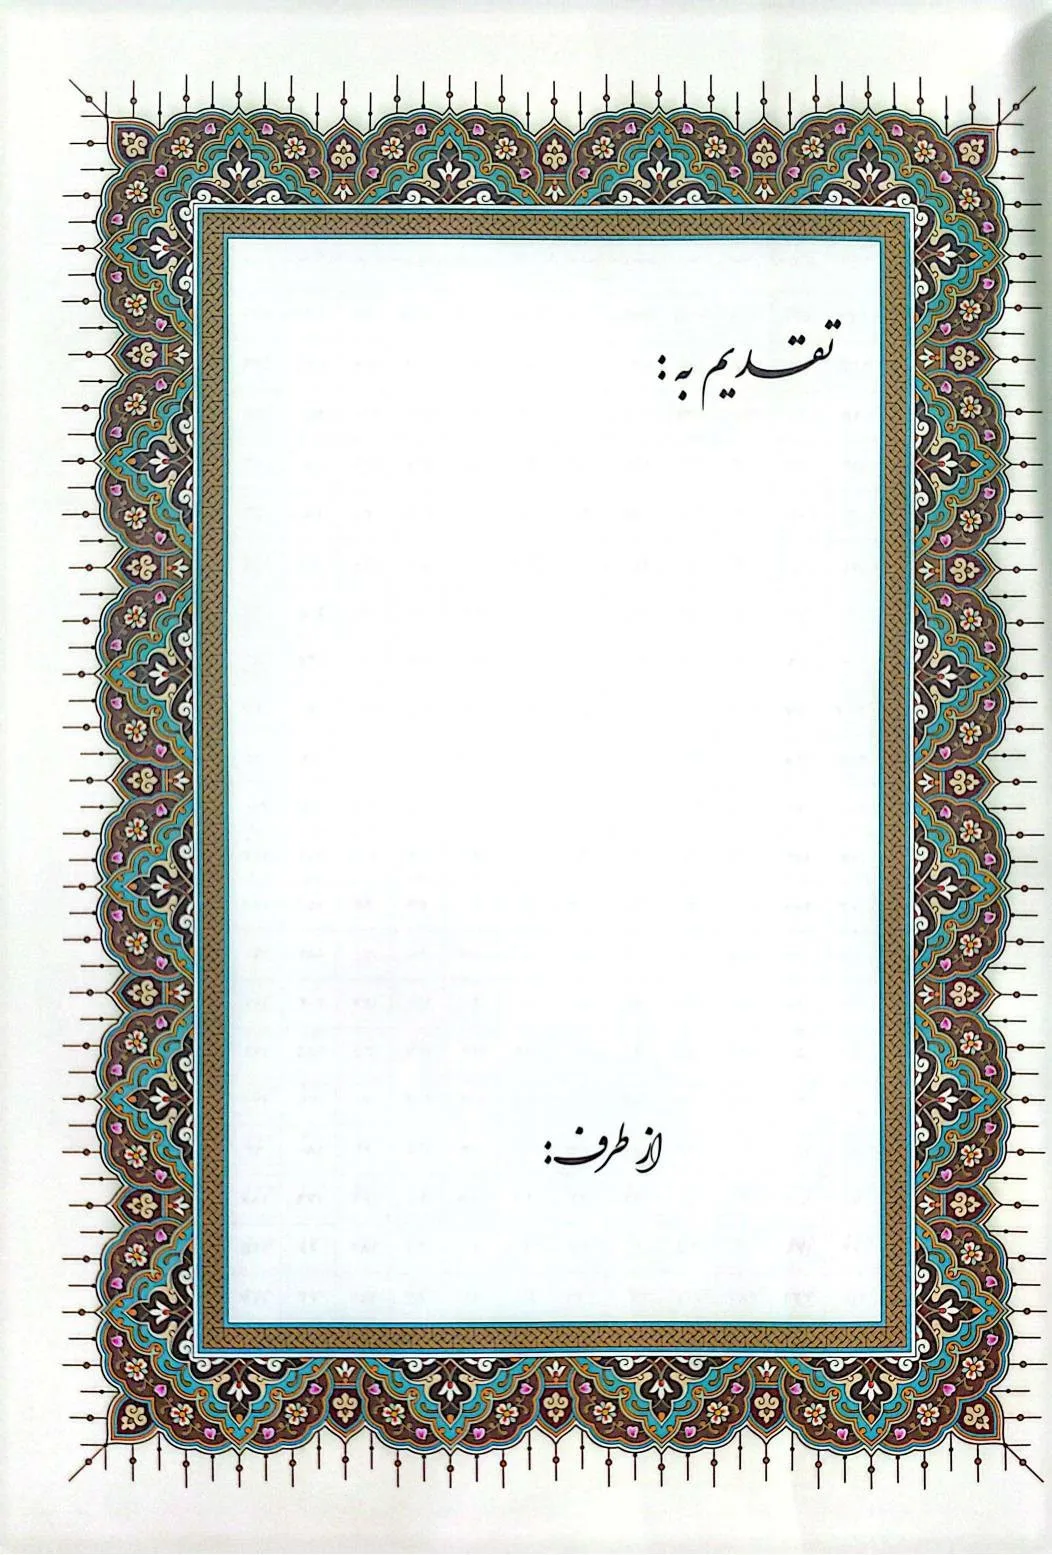 تقدیم به :
از طرف: